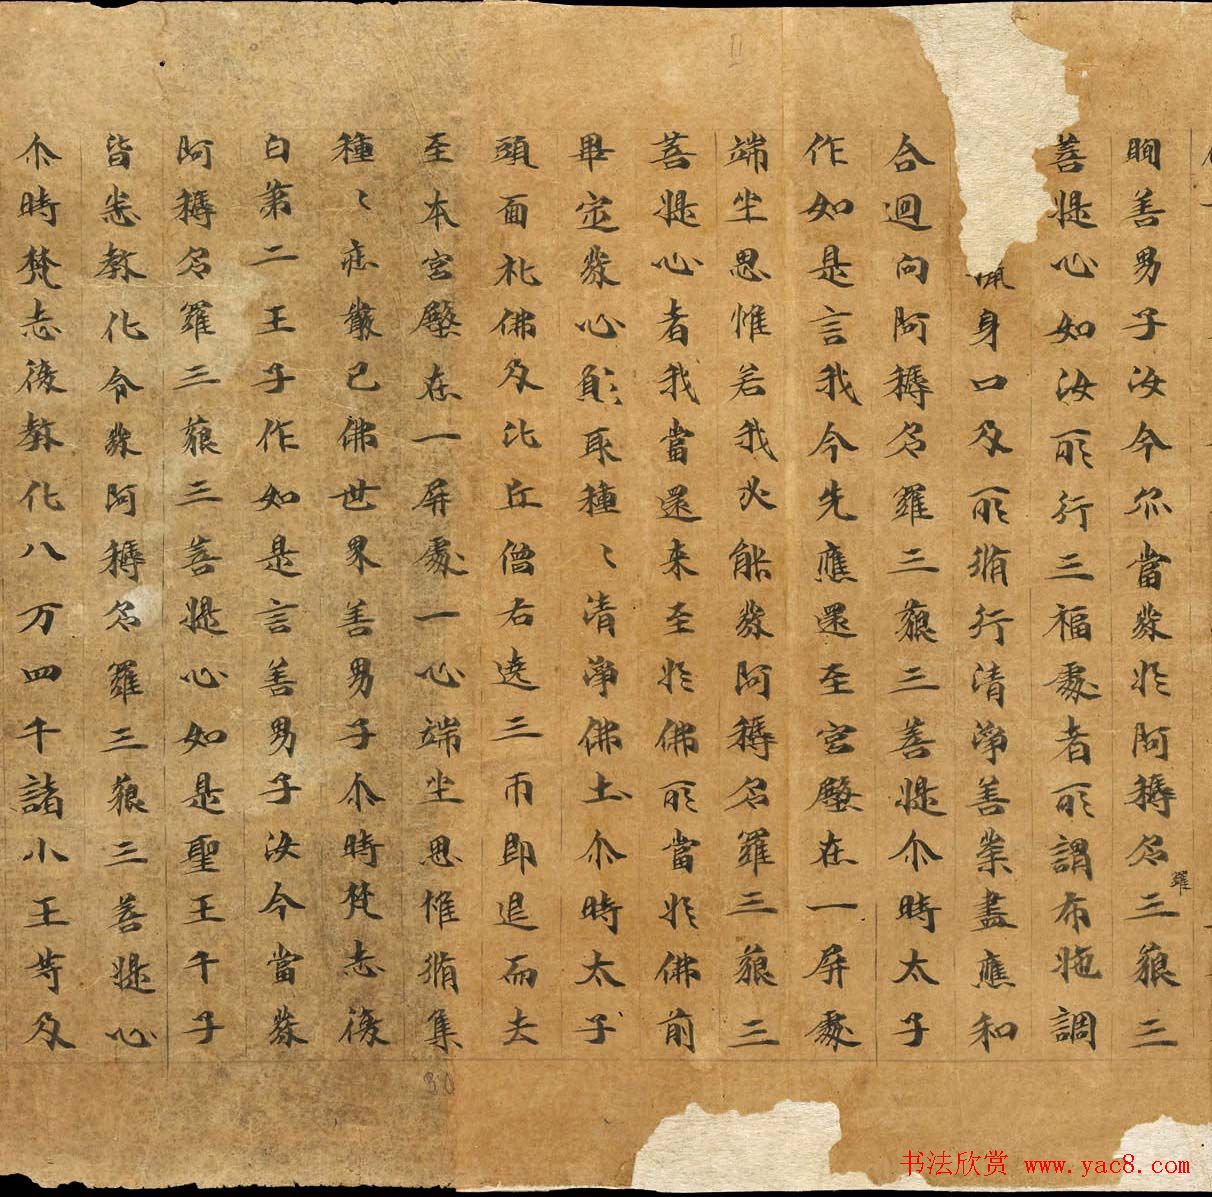 眴善男子汝今亦當發於阿耨多羅三藐三
菩提心如汝所行三福處者所謂布施調
身口及所修行清淨善業盡應和
合迴向阿耨多羅三藐三菩提尒時太子
作如是言我今先應還至宮殿在一屏處
端坐思惟若我必能發阿耨多羅三藐三
菩提心者我當還來至於佛所當於佛前
畢定發心願取種〻清淨佛土尒時太子
頭面礼佛及比丘僧右遶三匝即退而去
至本宮殿在一屏處一心端坐思惟修集
種〻莊嚴己佛世界善男子尒時梵志復
白第二王子作如是言善男子汝今當發
阿耨多羅三藐三菩提心如是聖王千子
皆悉教化令發阿耨多羅三藐三菩提心
尒時梵志復教化八万四千諸小王等及
书法欣赏 www.yac8.com